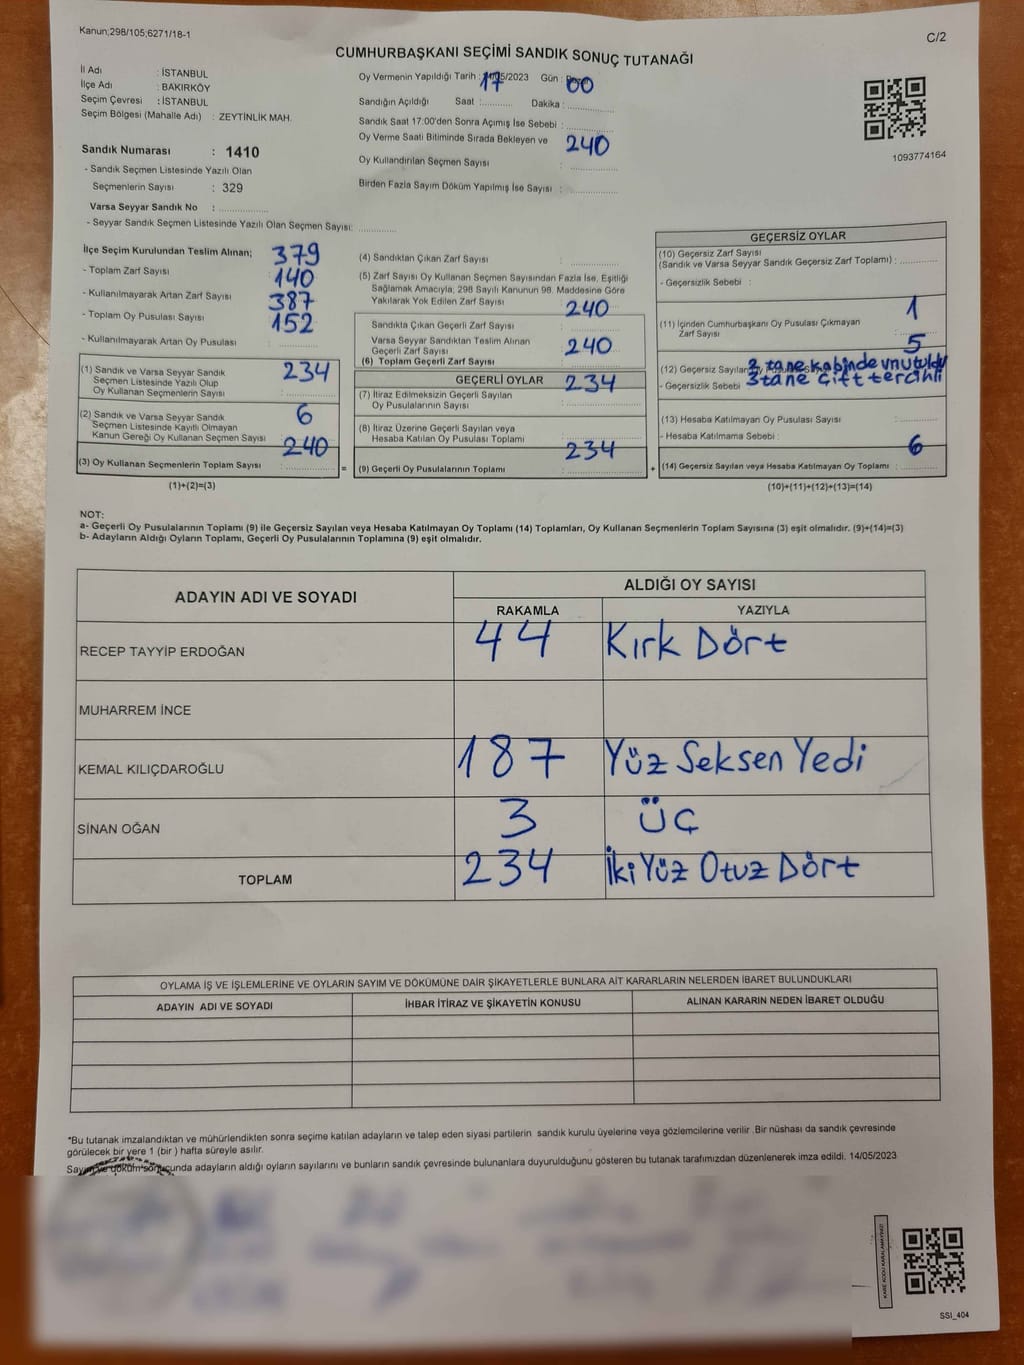 Kanun;298/105;6271/18-1
C/2
CUMHURBAŞKANI SEÇİMİ SANDIK SONUÇ TUTANAĞI
İl Adı : İSTANBUL
İlçe Adı : BAKIRKÖY
Seçim Çevresi : İSTANBUL
Seçim Bölgesi (Mahalle Adı) : ZEYTİNLİK MAH.
Sandık Numarası : 1410
- Sandık Seçmen Listesinde Yazılı Olan
Seçmenlerin Sayısı : 329
Varsa Seyyar Sandık No :
- Seyyar Sandık Seçmen Listesinde Yazılı Olan Seçmen Sayısı:
Oy Vermenin Yapıldığı Tarih : /05/2023 Gün :
17 00
Sandığın Açıldığı Saat : Dakika :
Sandık Saat 17.00'den Sonra Açımış İse Sebebi :
Oy Verme Saati Bitiminde Sırada Bekleyen ve
240
Oy Kullandırılan Seçmen Sayısı :
Birden Fazla Sayım Döküm Yapılmış İse Sayısı :
1093774164
İlçe Seçim Kurulundan Teslim Alınan;
379
- Toplam Zarf Sayısı :
140
- Kullanılmayarak Artan Zarf Sayısı :
387
- Toplam Oy Pusulası Sayısı :
152
- Kullanılmayarak Artan Oy Pusulası :
(1) Sandık ve Varsa Seyyar Sandık
Seçmen Listesinde Yazılı Olup
Oy Kullanan Seçmenlerin Sayısı :
234
(2) Sandık ve Varsa Seyyar Sandık
Seçmen Listesinde Kayıtlı Olmayan
Kanun Gereği Oy Kullanan Seçmen Sayısı :
6
240
(3) Oy Kullanan Seçmenlerin Toplam Sayısı :
(1)+(2)=(3)
=
(4) Sandıktan Çıkan Zarf Sayısı :
(5) Zarf Sayısı Oy Kullanan Seçmen Sayısından Fazla İse, Eşitliği
Sağlamak Amacıyla, 298 Sayılı Kanunun 98. Maddesine Göre
Yakılarak Yok Edilen Zarf Sayısı :
240
Sandıkta Çıkan Geçerli Zarf Sayısı :
Varsa Seyyar Sandıktan Teslim Alınan
Geçerli Zarf Sayısı :
240
(6) Toplam Geçerli Zarf Sayısı :
GEÇERLİ OYLAR
234
(7) İtiraz Edilmeksizin Geçerli Sayılan
Oy Pusulalarının Sayısı :
(8) İtiraz Üzerine Geçerli Sayılan veya
Hesaba Katılan Oy Pusulası Toplamı :
234
(9) Geçerli Oy Pusulalarının Toplamı :
+
GEÇERSİZ OYLAR
(10) Geçersiz Zarf Sayısı
(Sandık ve Varsa Seyyar Sandık Geçersiz Zarf Toplamı) :
- Geçersizlik Sebebi :
1
(11) İçinden Cumhurbaşkanı Oy Pusulası Çıkmayan
Zarf Sayısı :
5
(12) Geçersiz Sayılan
tane kabinde unutuldu
- Geçersizlik Sebebi
3 tane çift tercihli
(13) Hesaba Katılmayan Oy Pusulası Sayısı :
- Hesaba Katılmama Sebebi :
6
(14) Geçersiz Sayılan veya Hesaba Katılmayan Oy Toplamı :
(10)+(11)+(12)+(13)=(14)
NOT:
a- Geçerli Oy Pusulalarının Toplamı (9) ile Geçersiz Sayılan veya Hesaba Katılmayan Oy Toplamı (14) Toplamları, Oy Kullanan Seçmenlerin Toplam Sayısına (3) eşit olmalıdır. (9)+(14)=(3)
b- Adayların Aldığı Oyların Toplamı, Geçerli Oy Pusulalarının Toplamına (9) eşit olmalıdır.
ADAYIN ADI VE SOYADI
ALDIĞI OY SAYISI
RAKAMLA YAZIYLA
RECEP TAYYİP ERDOĞAN 44 Kırk Dört
MUHARREM İNCE
KEMAL KILIÇDAROĞLU 187 Yüz Seksen Yedi
SİNAN OĞAN 3 Üç
TOPLAM 234 İki Yüz Otuz Dört
OYLAMA İŞ VE İŞLEMLERİNE VE OYLARIN SAYIM VE DÖKÜMÜNE DAİR ŞİKAYETLERLE BUNLARA AİT KARARLARIN NELERDEN İBARET BULUNDUKLARI
ADAYIN ADI VE SOYADI İHBAR İTİRAZ VE ŞİKAYETİN KONUSU ALINAN KARARIN NEDEN İBARET OLDUĞU
*Bu tutanak imzalandıktan ve mühürlendikten sonra seçime katılan adayların ve talep eden siyasi partilerin sandık kurulu üyelerine veya gözlemcilerine verilir .Bir nüshası da sandık çevresinde
görülecek bir yere 1 (bir ) hafta süreyle asılır.
Sayım ve döküm sonucunda adayların aldığı oyların sayılarını ve bunların sandık çevresinde bulunanlara duyurulduğunu gösteren bu tutanak tarafımızdan düzenlenerek imza edildi. 14/05/2023
KARE KODU KARALAMAYINIZ!
SSI_404